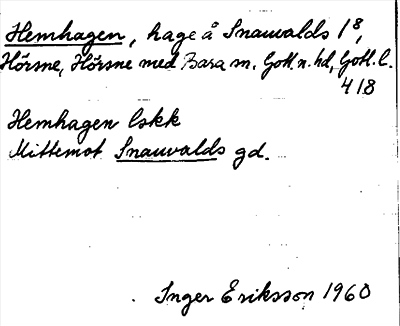 Hemhagen, hage å Snauvalds 1⁸,
Hörsne, Hörsne med Bara sn. Gotl. n. hd, Gotl. l.
418
Hemhagen lskk
Mittemot Snauvalds gd.
Inger Eriksson 1960